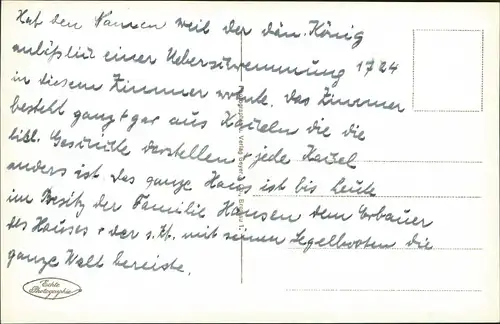 Hat den Namen weil der dän. König
anläßlich einer Ueberschwemmung 1724
in diesem Zimmer wohnte. Das Zimmer
besteht ganz + gar aus Kacheln die die
bibl. Geschichte darstellen + jede Kachel
anders ist. Das ganze Haus ist bis heute
im Besitz der Familie Hansen dem Erbauer
des Hauses + der s. Zt. mit seinen Segelbooten die
ganze Welt bereiste.
Echte
Photographie